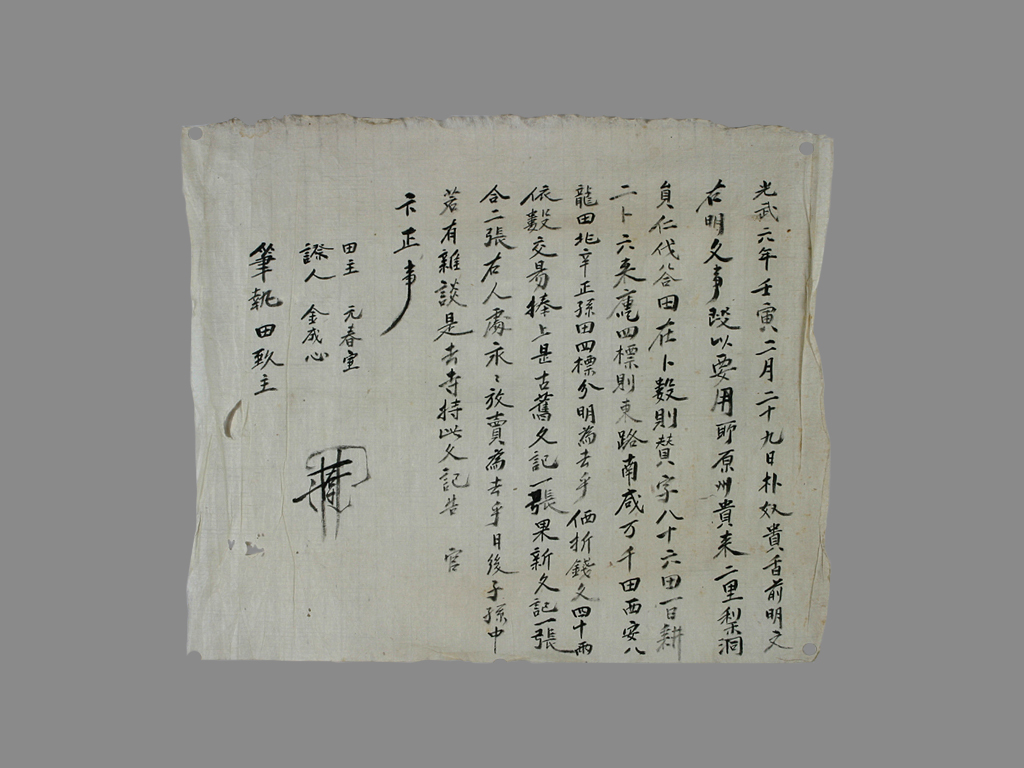 光武六年壬寅二月二十九日朴奴貴香前明文
右明文事段以要用所原州貴來二里梨洞
員仁伐谷田在卜數則贊字八十六田一日耕
二卜六束庫四標則東路南咸万千田西安八
龍田北辛正孫田四標分明為去乎価折錢文四十両
依數交易捧上是古舊文記一張果新文記一張
合二張右人處永々放賣為去乎日後子孫中
若有雜談是去等持此文記告 官
卞正事
田主 元春實
證人 金成心
筆執 田主